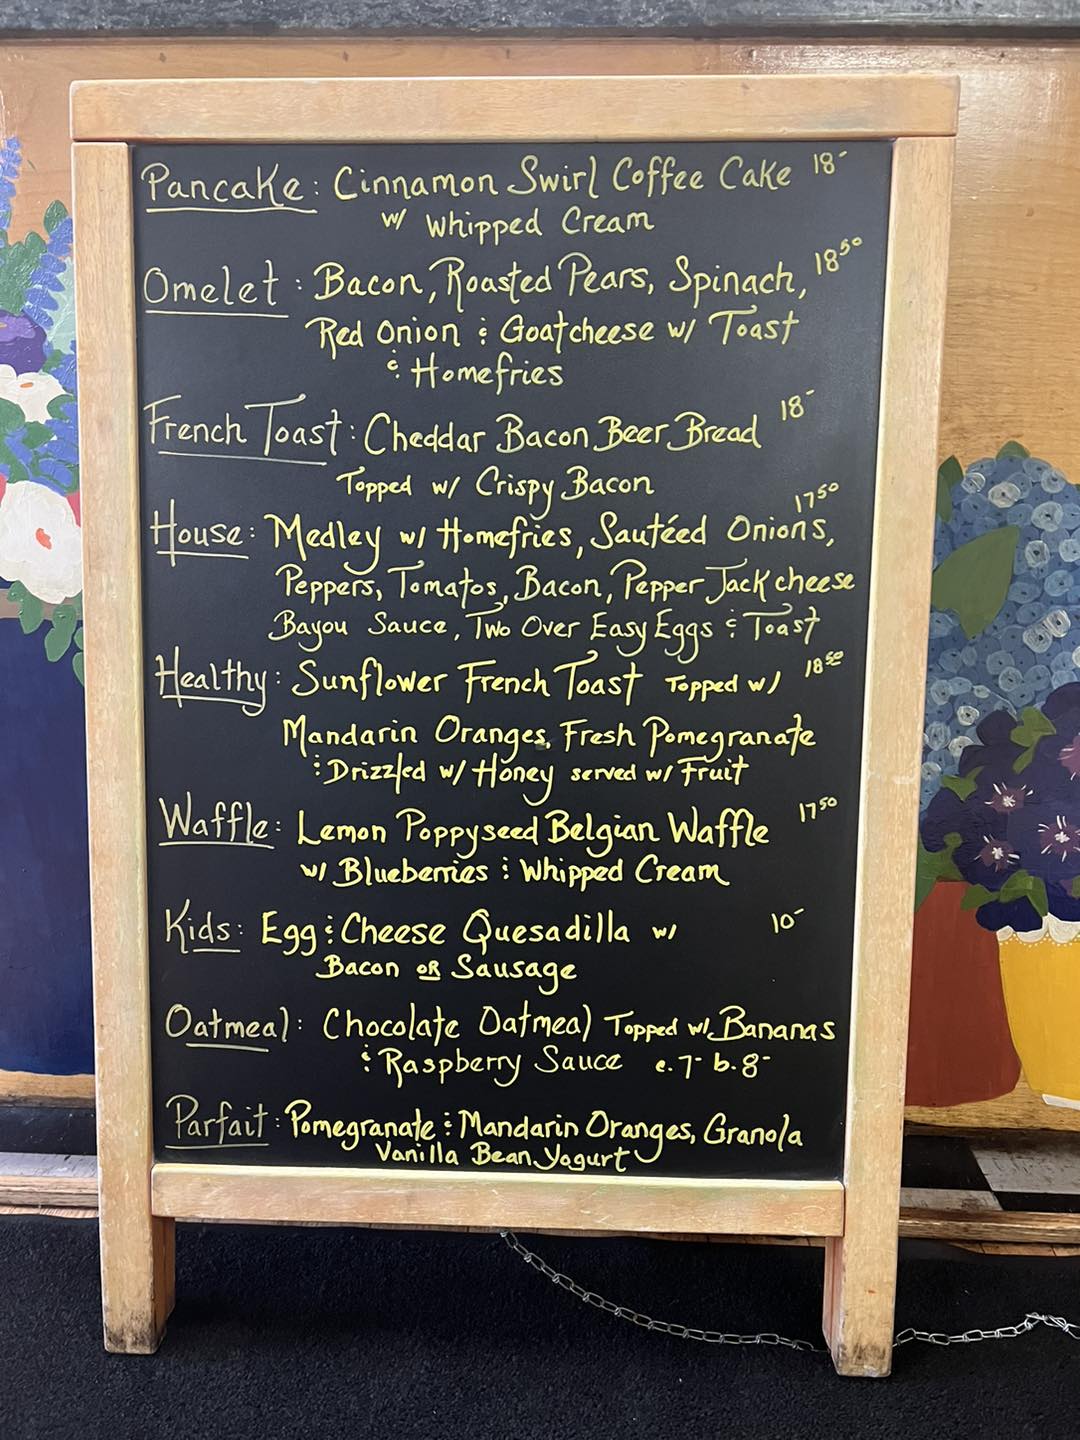 Pancake: Cinnamon Swirl Coffee Cake 18-
w/ Whipped Cream
Omelet: Bacon, Roasted Pears, Spinach, 18 50
Red Onion & Goatcheese w/ Toast
& Homefries
French Toast: Cheddar Bacon Beer Bread 18-
Topped w/ Crispy Bacon
House: Medley w/ Homefries, Sautéed Onions, 17 50
Peppers, Tomatos, Bacon, Pepper Jack cheese
Bayou Sauce, Two Over Easy Eggs & Toast
Healthy: Sunflower French Toast Topped w/ 18 50
Mandarin Oranges, Fresh Pomegranate
& Drizzled w/ Honey served w/ Fruit
Waffle: Lemon Poppyseed Belgian Waffle 17 50
w/ Blueberries & Whipped Cream
Kids: Egg & Cheese Quesadilla w/ 10-
Bacon or Sausage
Oatmeal: Chocolate Oatmeal Topped w/ Bananas
& Raspberry Sauce c. 7- b. 8-
Parfait: Pomegranate & Mandarin Oranges, Granola
Vanilla Bean Yogurt